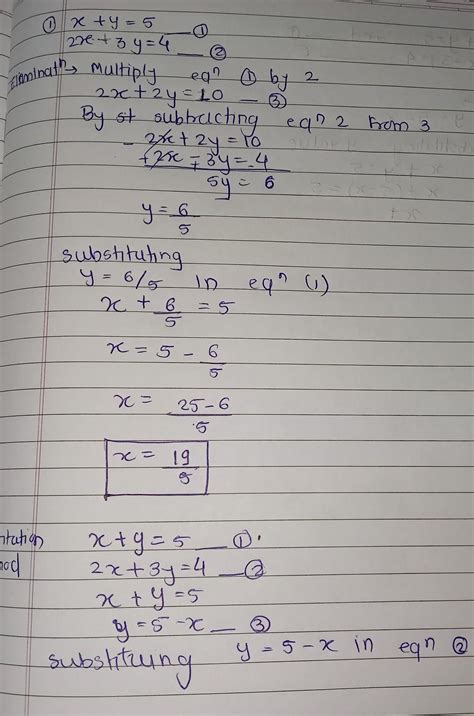 ① x + y = 5 — ①
2x + 3y = 4 — ②
Eliminatⁿ → Multiply eqⁿ ① by 2
2x + 2y = 10 — ③
By st subtracting eqⁿ 2 from 3
- 2x + 2y = 10
+2x - 3y = -4
5y = 6
y = 6/5
substituting
y = 6/5 in eqⁿ (1)
x + 6/5 = 5
x = 5 - 6/5
x = 25-6/5
x = 19/5
ntution x + y = 5 — ①
hod 2x + 3y = 4 — ②
x + y = 5
y = 5 - x — ③
substitrung y = 5 - x in eqⁿ ②